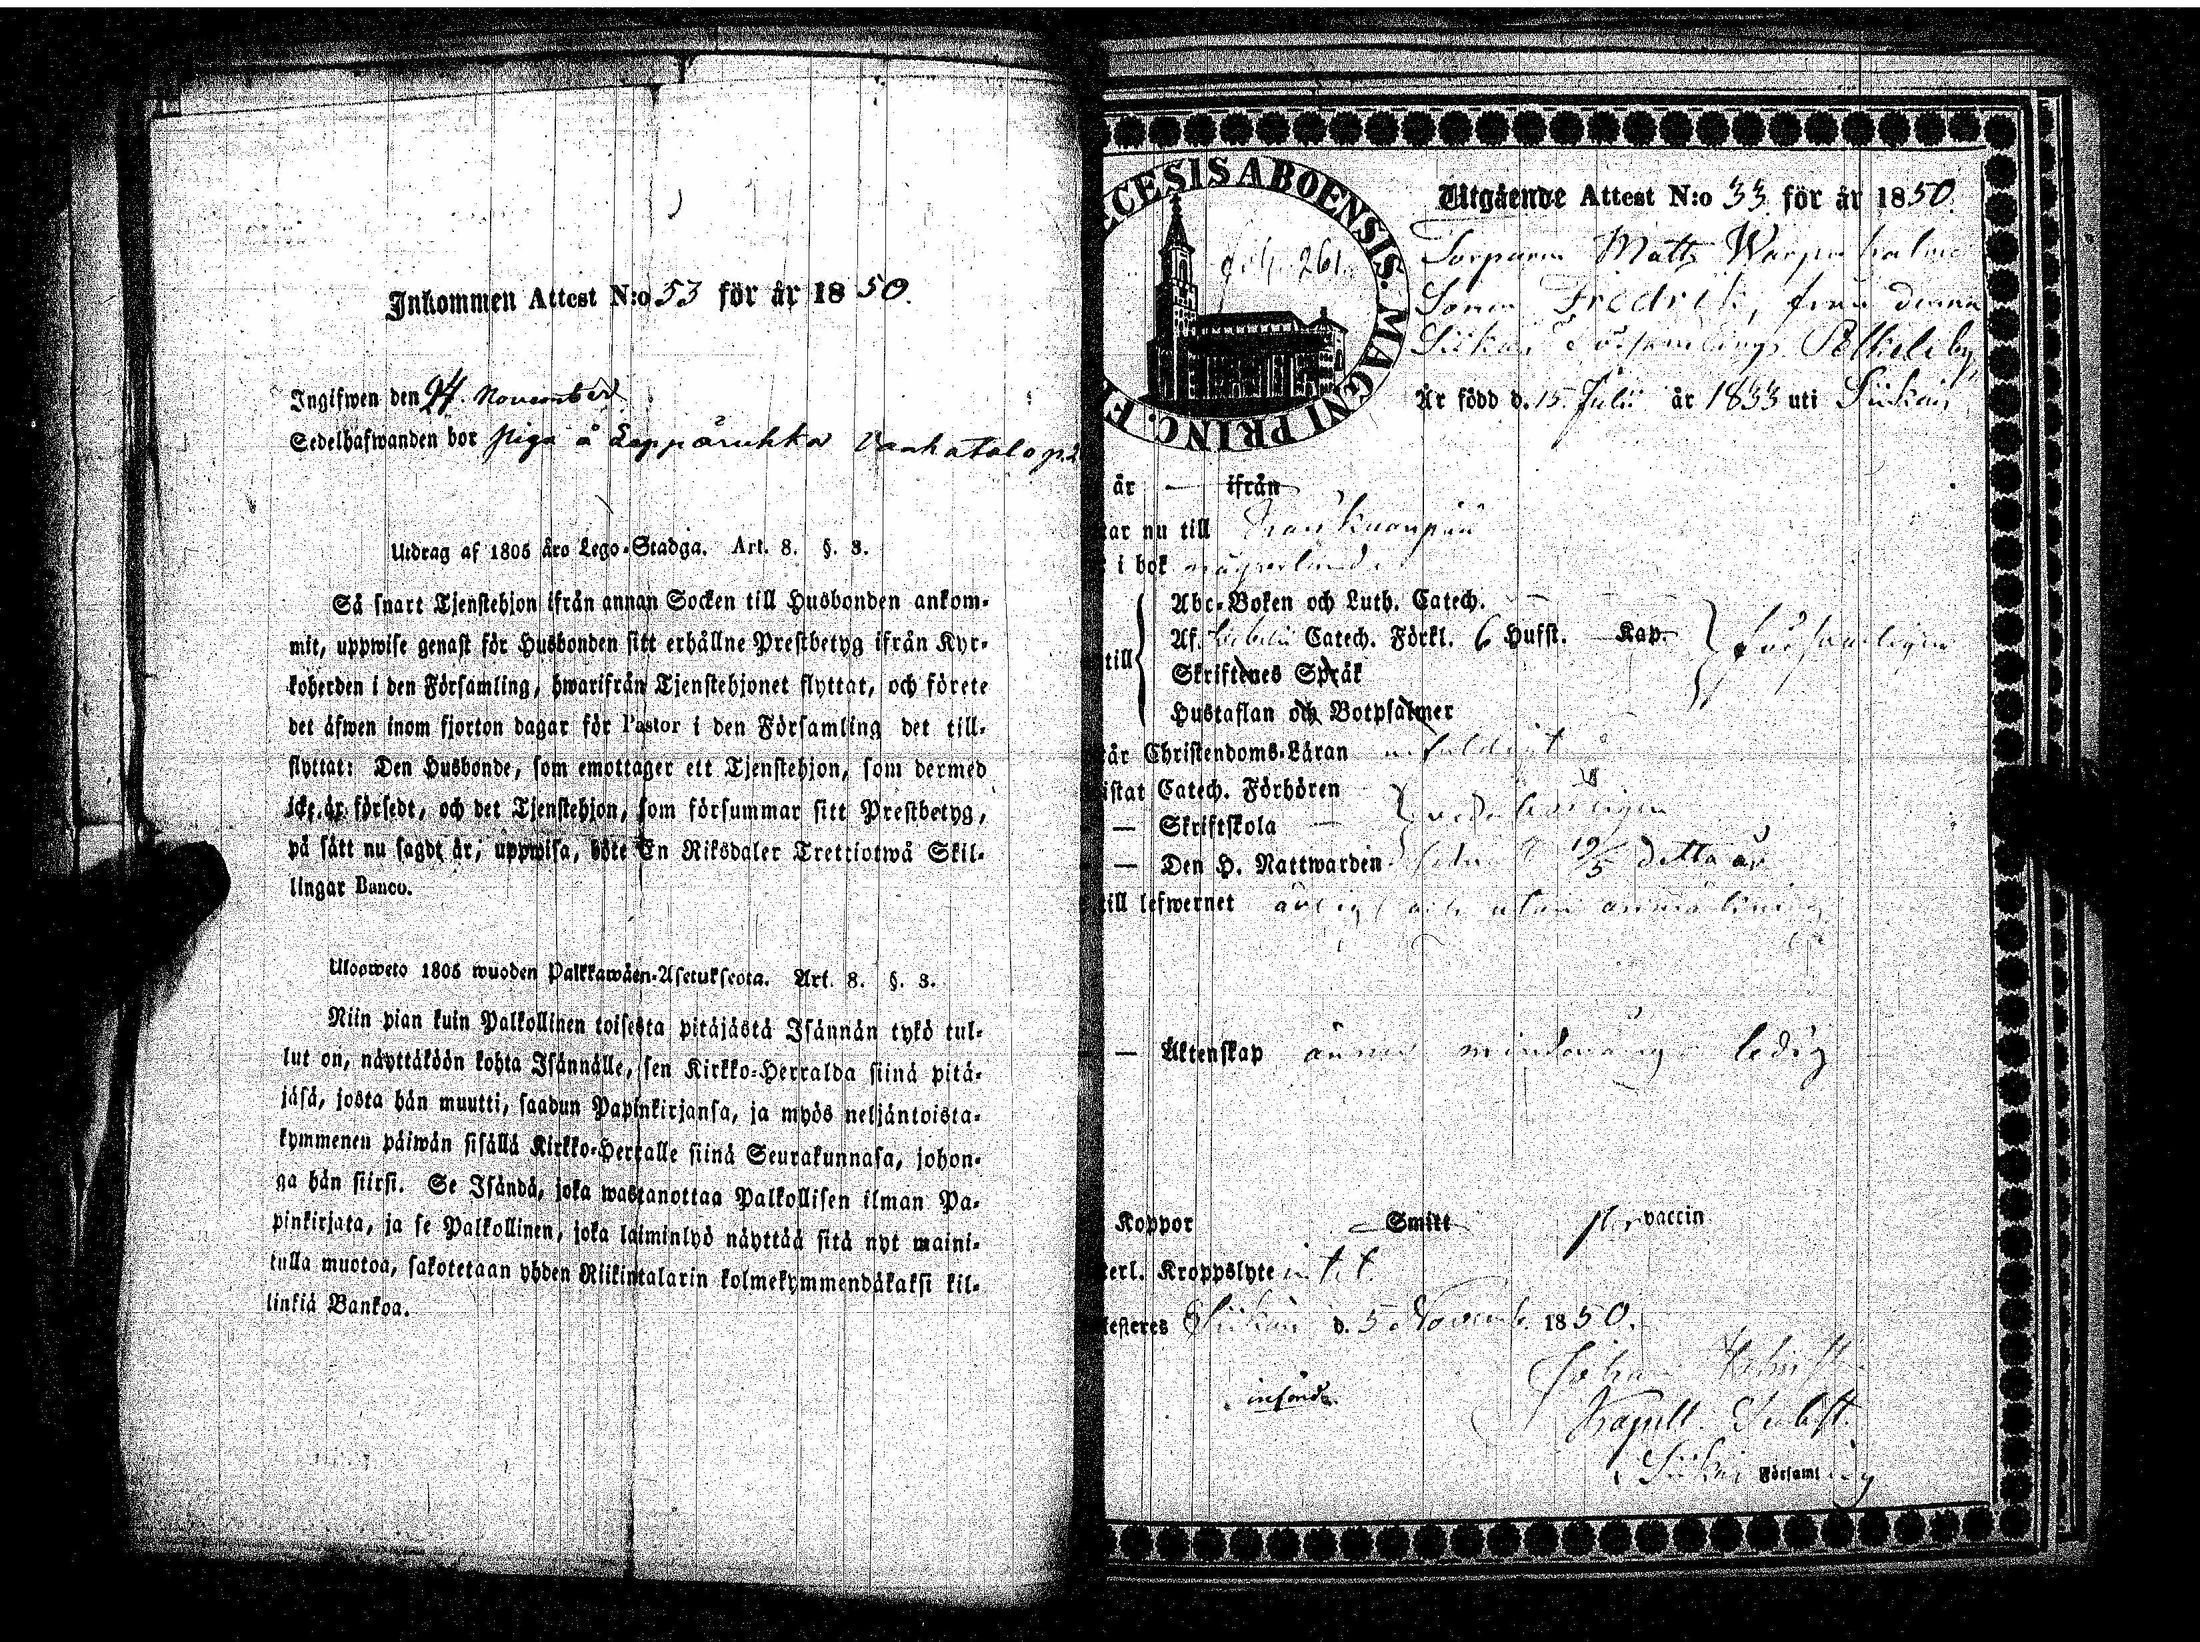 Inkommen Attest N:o 53 för år 1850.
Ingifwen den 24. November
Sedelhafwanden bor piga å Leppäruhka Vanhatalo
Utdrag af 1805 års Lego-Stadga. Art. 8. §. 3.
Så snart Tjenstehjon ifrån annan Socken till Husbonden ankom-
mit, uppwise genast för Husbonden sitt erhållne Prestbetyg ifrån Kyr-
koherden i den Församling, hwarifrån Tjenstehjonet flyttat, och förete
det äfwen inom fjorton dagar för Pastor i den Församling det till-
flyttat: Den Husbonde, som emottager ett Tjenstehjon, som dermed
icke är försedt, och det Tjenstehjon, som försummar sitt Prestbetyg,
på sätt nu sagdt är, uppwisa, böte En Riksdaler Trettiotwå Skil-
lingar Banco.
Uloosweto 1805 wuoden Palkkawäen-Asetuksesta. Art. 8. §. 3.
Niin pian kuin Palkollinen toisesta pitäjästä Isännän tykö tul-
lut on, näyttäköön kohta Isännälle, sen Kirkko-Herralda siinä pitä-
jäsä, josta hän muutti, saadun Papinkirjansa, ja myös neljäntoista-
kymmenen päiwän sisällä Kirkko-Herralle siinä Seurakunnasa, johon-
ga hän siirsi. Se Isändä, joka wastanottaa Palkollisen ilman Pa-
pinkirjata, ja se Palkollinen, joka laiminlyö näyttää sitä nyt maini-
tulla muotoa, sakotetaan yhden Riikintalarin kolmekymmendäkaksi kil-
linkiä Bankoa.
CESIS ABOENSIS. MAGNI PRINC. F
fol. 261.
Utgående Attest N:o 33 för år 1850.
Torparen Matts
Sonen Fredrik, från denna
Siikais Församlings by,
Är född d. 15. Julii år 1833 uti Siikais
år — ifrån
ar nu till
i bok
till
Abc-Boken och Luth. Catech.
Af. Catech. Förkl. 6 Hufst. — Kap. försvarligen
Skriftenes Språk
Hustaflan och Botpsalmer
år Christendoms-Läran
istat Catech. Förhören
— Skriftskola —
— Den H. Nattwarden 19/5 detta år
till lefwernet ärligt och utan anmärkning
— Äktenskap ännu minderårig ledig
Koppor — Smitt vaccin
erl. Kroppslyte intet
esteres Siikais d. 5 Novemb. 1850.
införd.
Johan
Kapell. Subst.
Siikais Församling